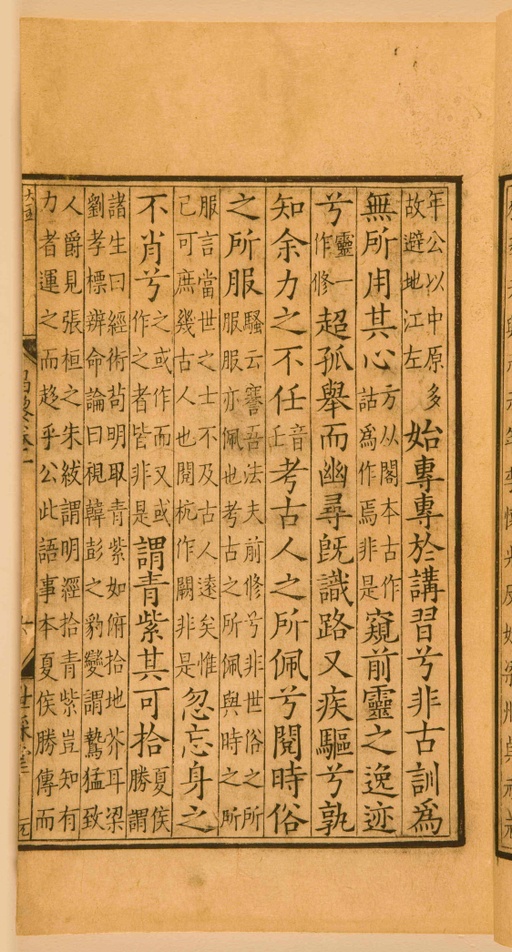 年公以中原多故避地江左始專專於講習兮非古訓為
無所用其心方从閣本古作詁為作焉非是窺前靈之逸迹
兮靈一作修超孤舉而幽尋既識路又疾驅兮孰
知余力之不任音壬考古人之所佩兮閱時俗
之所服騷云謇吾法夫前修兮非世俗之所服服亦佩也考古之所佩與時之所
服言當世之士不及古人遠矣惟己可庶幾古人也閱杭作闕非是忽忘身之
不肖兮之或作而又或作之者皆非是謂青紫其可拾夏侯勝謂
諸生曰經術茍明取青紫如俯拾地芥耳梁劉孝標辨命論曰視韓彭之豹變謂鷙猛致
人爵見張桓之朱紱謂明經拾青紫豈知有力者運之而趍乎公此語事本夏侯勝傳而